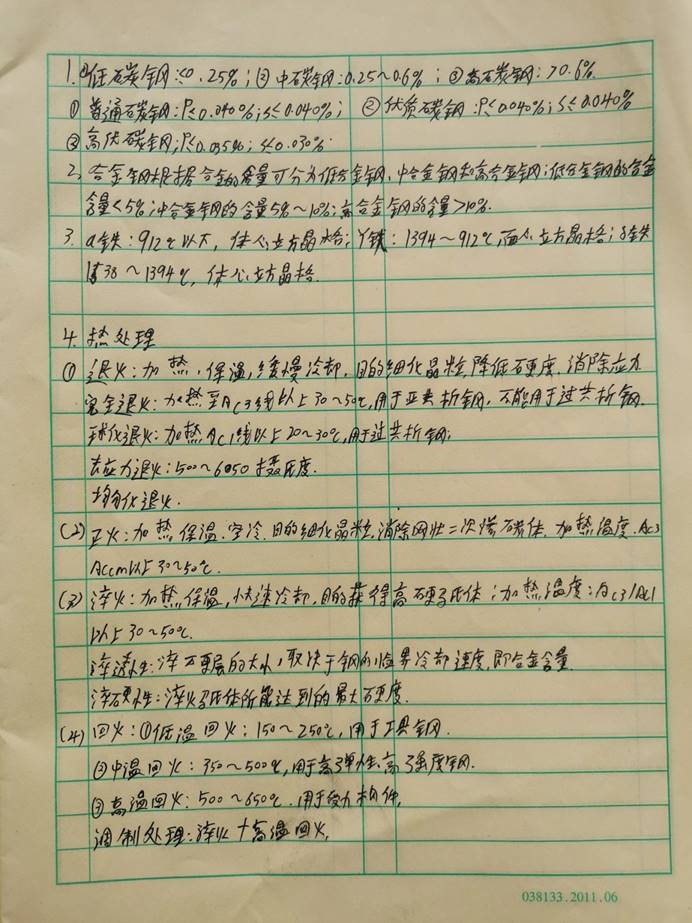 1. ①低碳钢: ≤0.25%; ② 中碳钢: 0.25~0.6%; ③ 高碳钢: >0.6%
① 普通碳钢: P≤0.040%; S≤0.040%; ② 优质碳钢: P≤0.040%; S≤0.040%
③ 高优碳钢; P≤0.035%; S≤0.030%.
2. 合金钢根据合金的含量可分为低合金钢、中合金钢和高合金钢; 低合金钢的合金
含量<5%; 中合金钢的含量5%~10%; 高合金钢的含量>10%.
3. α铁: 912℃以下, 体心立方晶格; γ铁: 1394~912℃, 面心立方晶格; δ铁
1538~1394℃, 体心立方晶格.
4. 热处理
① 退火: 加热, 保温, 缓慢冷却, 目的细化晶粒, 降低硬度, 消除应力
完全退火: 加热至Ac3线以上30~50℃, 用于亚共析钢, 不能用于过共析钢.
球化退火: 加热Ac1线以上20~30℃, 用于过共析钢;
去应力退火: 500~6050摄氏度.
均匀化退火.
(2) 正火: 加热, 保温, 空冷, 目的细化晶粒, 消除网状二次渗碳体, 加热温度. Ac3
Accm以上30~50℃.
(3) 淬火: 加热, 保温, 快速冷却, 目的获得高硬马氏体; 加热温度: Ac3/Ac1
以上30~50℃.
淬透性: 淬硬层的大小, 取决于钢的临界冷却速度, 即合金含量.
淬硬性: 淬火马氏体所能达到的最大硬度.
(4) 回火: ①低温回火: 150~250℃, 用于工具钢.
②中温回火: 350~500℃, 用于高弹性、高强度钢.
③高温回火: 500~650℃. 用于受力构件,
调制处理: 淬火+高温回火,
038133.2011.06